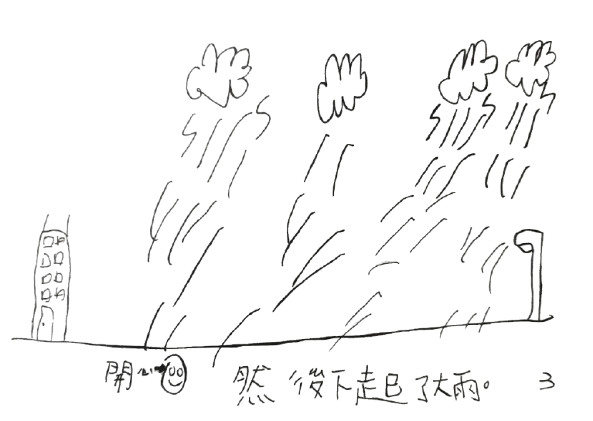 開心 然後下起了大雨。 3